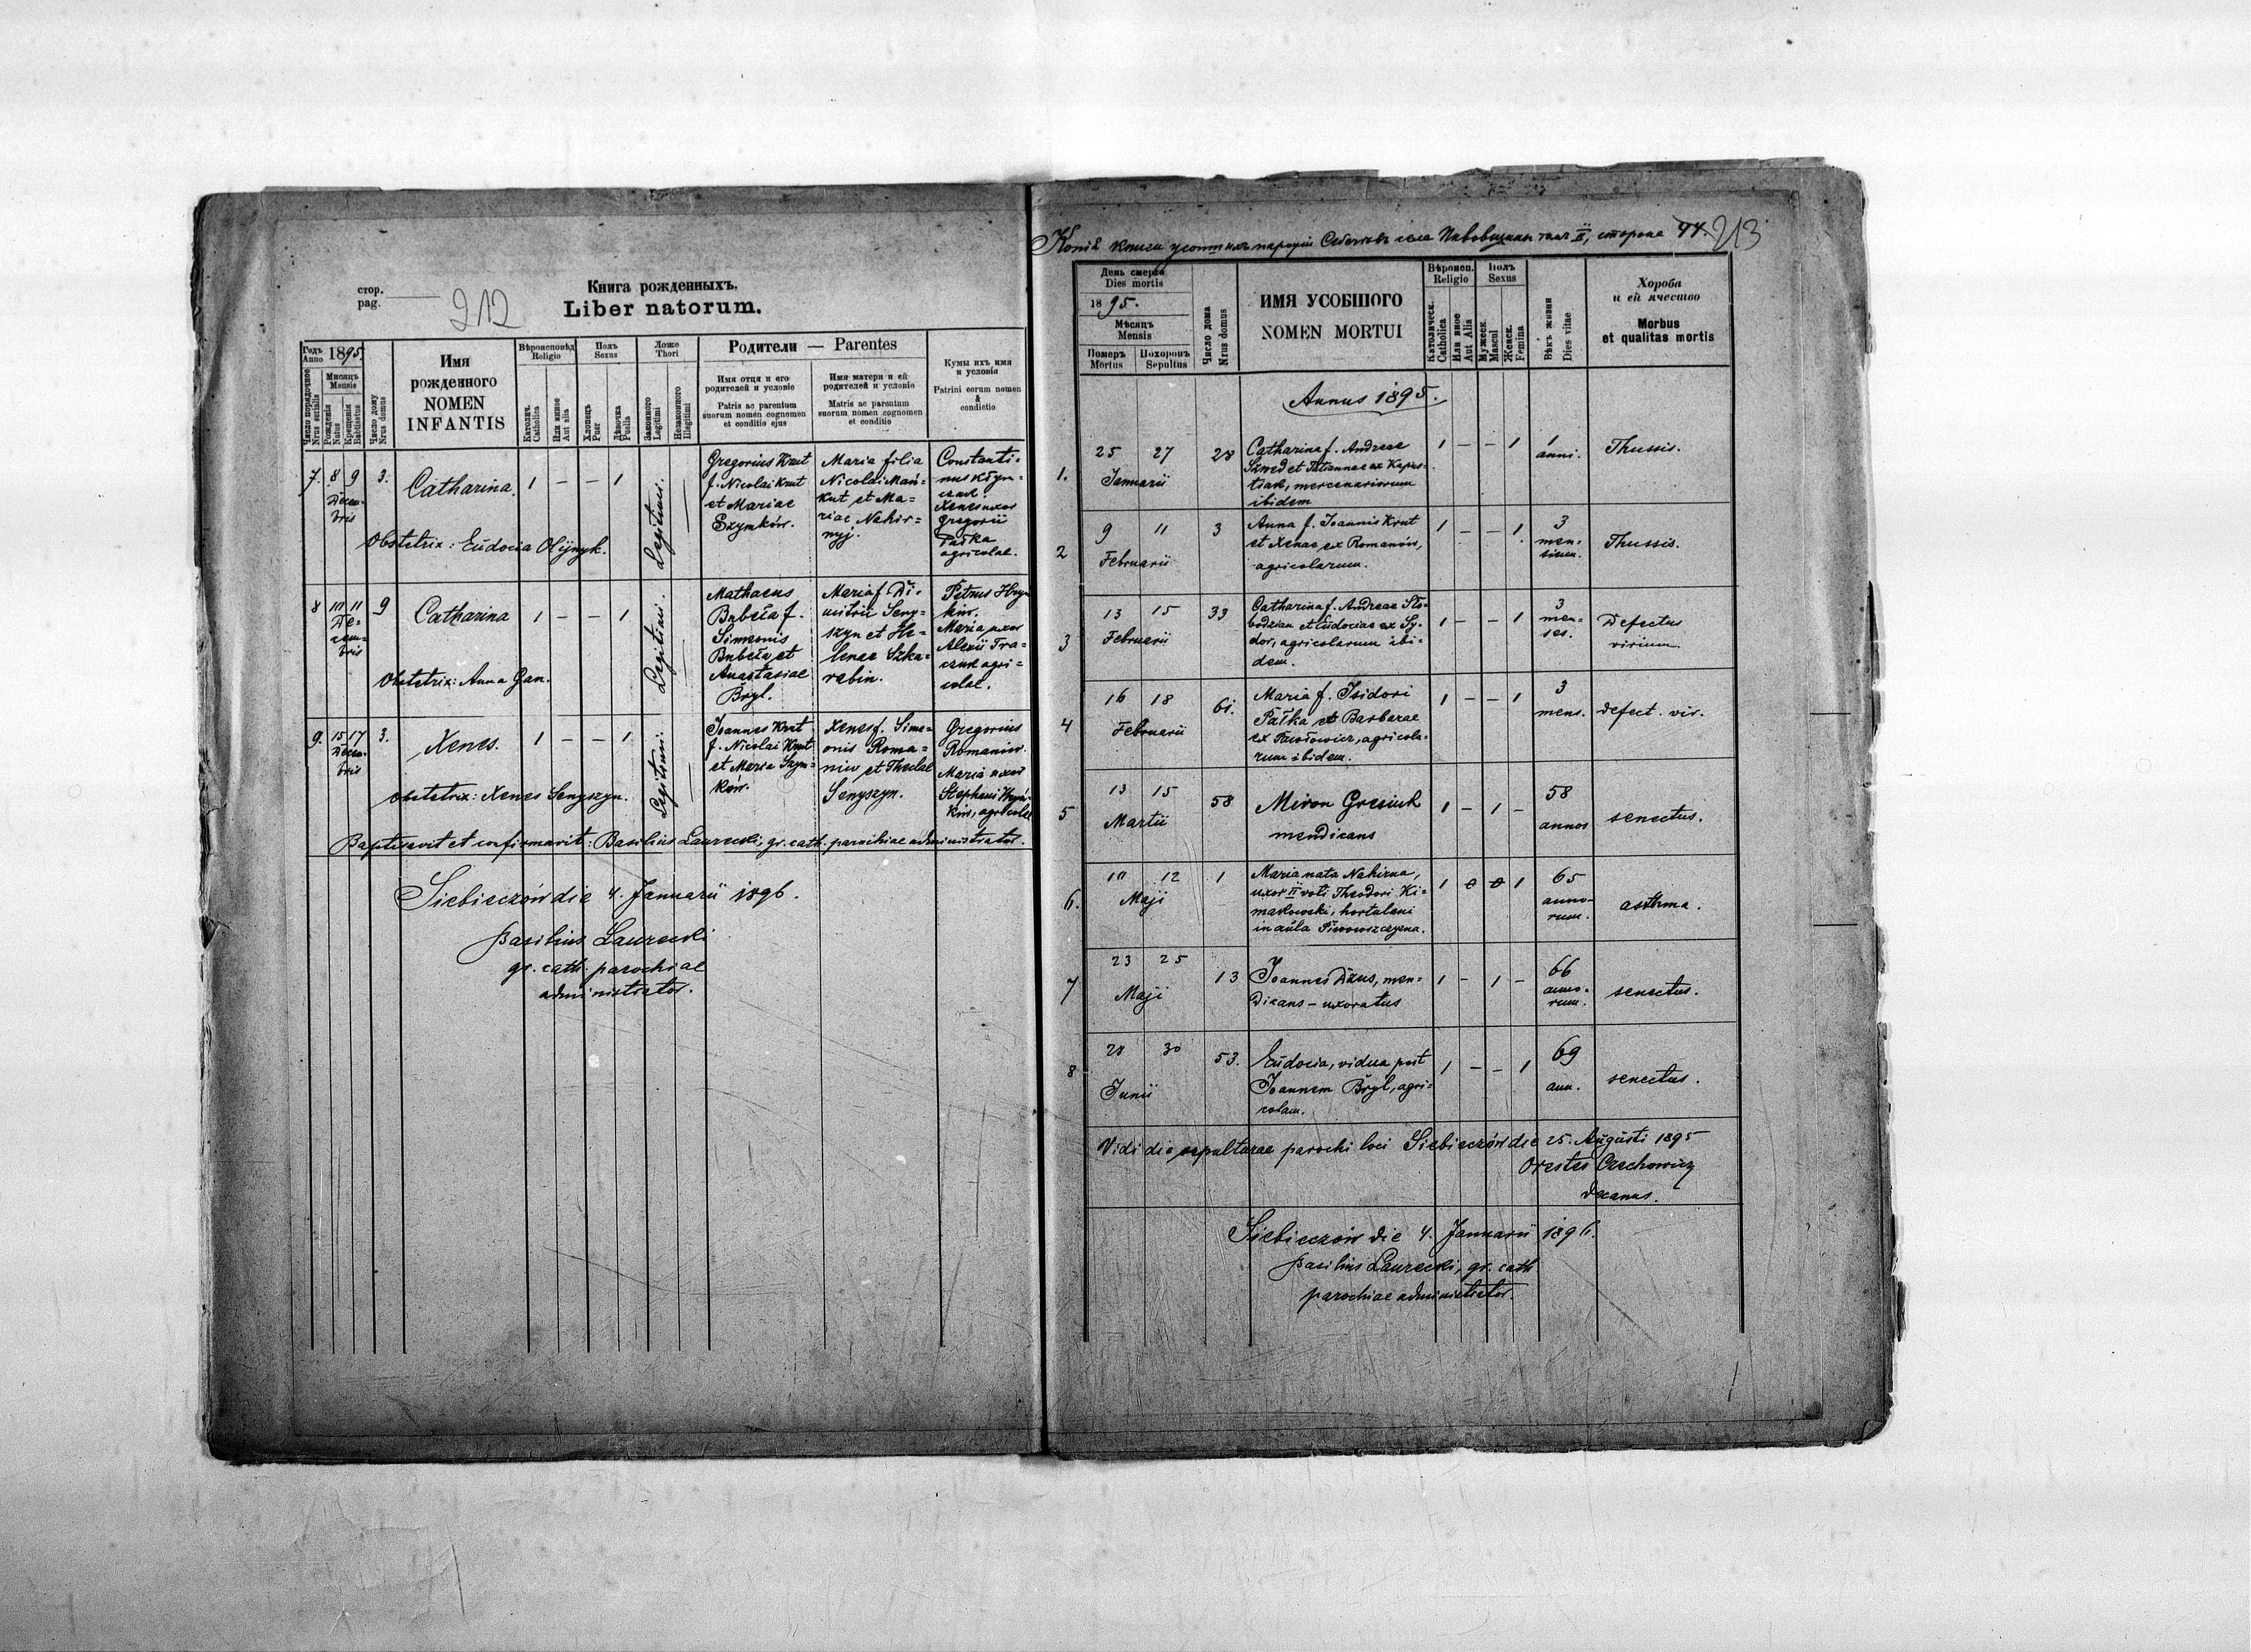 стор.
pag.
212
Книга рожденныхъ.
Liber natorum.
Годъ
Anno
1895.
Мѣсяцъ
Mensis
Число порядочное
Nrus serialis
Рожденія
Natus
Крещенія
Babtistus
Число дому
Nrus domus
Имя
рожденного
NOMEN
INFANTIS
Вѣроисповѣд
Religio
Католич.
Catholica
Или инное
Aut alia
Полъ
Sexus
Хлопець
Puer
Дѣвочка
Puella
Ложе
Thori
Законного
Legitimi
Незаконного
Illegitimi
Родители — Parentes
Имя отца и его
родителей и условіе
Patris ac parentum
suorum nomen cognomen
et conditio ejus
Имя матери и ей
родителей и условіе
Matris ac parentum
suorum nomen cognomen
et conditio
Кумы ихъ имя
и условія
Patrini eorum nomen
&
conditio
7. 8 9 3.
Decem-
bris
Catharina.
1 — — 1
Legitimi.
Gregorius Krut
f. Nicolai Krut
et Mariae
Szymków.
Maria filia
Nicolai Mań=
kut et Ma=
riae Nahir=
nyj.
Constanti=
nus Kłym=
czuk.
Xenes uxor
Gregorii
Pałka
agricolae.
Obstetrix: Eudocia Olijnyk.
8 10 11 9
De-
cem-
bris
Catharina
1 — — 1
Legitimi.
Mathaeus
Bubeła f.
Simeonis
Bubeła et
Anastasiae
Bryl.
Maria f. Di-
mitrii Seny=
szyn et He-
lenae Szka=
rabin.
Petrus Hryn
kiw.
Maria uxor
Alexii Tra=
czuk agri=
colae.
Obstetrix: Anna Gan.
9. 15 17 3.
Decem-
bris
Xenes.
1 — — 1
Legitimi.
Joannes Krut
f. Nicolai Krut
et Maria Szym-
ków.
Xenes f. Sime-
onis Roma=
niw et Theclae
Senyszyn.
Gregorius
Romaniw.
Maria uxor
Stephani Hryń-
kiw, agricolae
Obstetrix: Xenes Senyszyn.
Baptisavit et confirmavit: Basilius Laurecki, gr. cath. parochiae administrator.
Siebieczów die 4. Januarii 1896.
Basilius Laurecki
gr. cath. parochiae
administrator.
Копія книги усопшихъ парохіи Себечовъ села Пивовщины томъ II, сторона 44.
213
День смерти
Dies mortis
1895.
Мѣсяцъ
Mensis
Померъ
Mortus
Похоронъ
Sepultus
Число дома
Nrus domus
ИМЯ УСОБШОГО
NOMEN MORTUI
Вѣроисп.
Religio
Католическ.
Catholica
Или иное
Aut Alia
Полъ
Sexus
Мужеск.
Mascul
Женск.
Femina
Вѣкъ жизни
Dies vitae
Хороба
и ей ячество
Morbus
et qualitas mortis
Annus 1895.
1. 25 27 28
Januarii
Catharina f. Andreae
Szwed et Tatiannae ex Kapus-
tiak, mercenariorum
ibidem
1 — — 1
1
anni.
Thussis.
2 9 11 3
Februarii
Anna f. Joannis Krut
et Xenae ex Romanów,
agricolarum.
1 — — 1
3
men=
sium.
Thussis.
3 13 15 33
Februarii
Catharina f. Andreae Sło-
bodzian et Eudociae ex Sy-
dor, agricolarum ibi-
dem.
1 — — 1
3
men=
ses.
Defectus
virium.
4 16 18 61.
Februarii
Maria f. Isidori
Pałka et Barbarae
ex Pawłowicz, agricola-
rum ibidem.
1 — — 1
3
mens.
defect. vir.
5 13 15 58
Martii
Miron Gresiuk
mendicans
1 — 1 —
58
annos
senectus.
6. 10 12 1
Maji
Maria nata Nahirna,
uxor II voti Theodori Ki-
makowski, hortulani
in aula Piwowszczyzna.
1 0 0 1
65
anno-
rum.
asthma.
7 23 25 13
Maji
Joannes Dżus, men=
dicans - uxoratus
1 — 1 —
66
anno-
rum.
senectus.
8 28 30 53.
Junii
Eudocia, vidua post
Joannem Bryl, agri=
colam.
1 — — 1
69
ann.
senectus.
Vidi die sepulturae parochi loci Siebieczów die 25. Augusti 1895
Orestes Czechowicz
decanus.
Siebieczów die 4. Januarii 1896.
Basilius Laurecki, gr. cath
parochiae administrator.